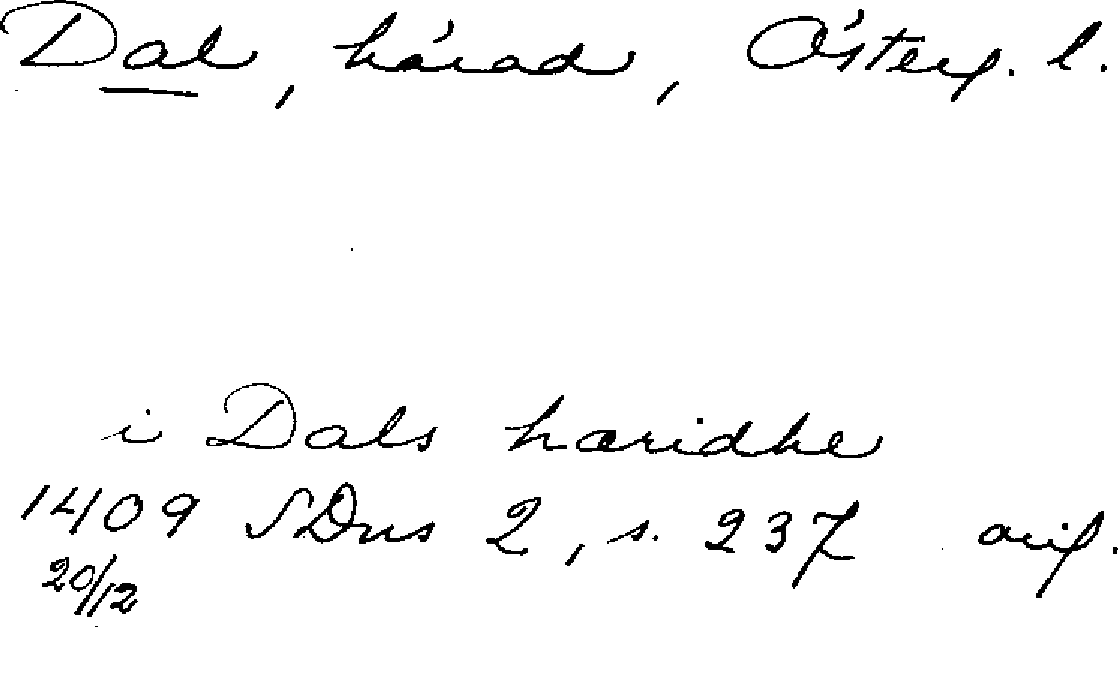 Dal, härad, Österg. l.
i Dals hæridhe
1409 SDns 2, s. 237 orig.
20/12